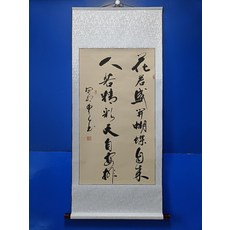 花若盛开蝴蝶自来
人若精彩天自安排